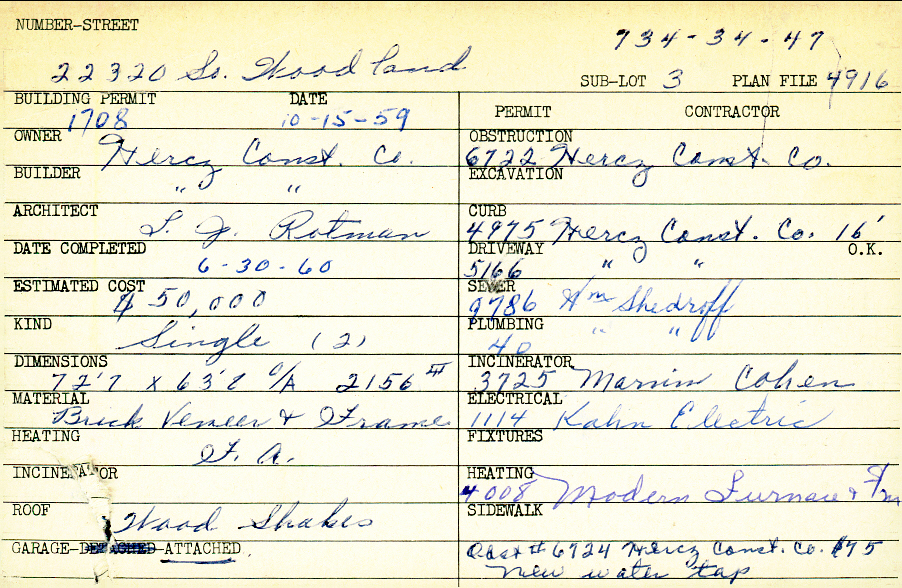 NUMBER-STREET
734-34-47
22320 So. Woodland
SUB-LOT 3 PLAN FILE 4916
BUILDING PERMIT DATE
1708 10-15-59
OWNER Hercz Const. Co.
BUILDER " "
ARCHITECT Rotman
DATE COMPLETED
6-30-60
ESTIMATED COST
$50,000
KIND
Single (2)
DIMENSIONS
72'7 x 63'8 O/A 2156
MATERIAL
Brick Veneer & Frame
HEATING
F. A.
INCINERATOR
ROOF Wood Shakes
GARAGE-DETACHED-ATTACHED
PERMIT CONTRACTOR
OBSTRUCTION
6722 Hercz Const. Co.
EXCAVATION
CURB
4975 Hercz Const. Co. 16'
DRIVEWAY O.K.
5166 " "
SEWER
9786 Wm Shedroff
PLUMBING
40 " "
INCINERATOR
3725 Marvin Cohen
ELECTRICAL
1114 Kahn Electric
FIXTURES
HEATING
4008 Modern Furnace &
SIDEWALK
Obst # 6724 Hercz Const. Co. $75
New water tap